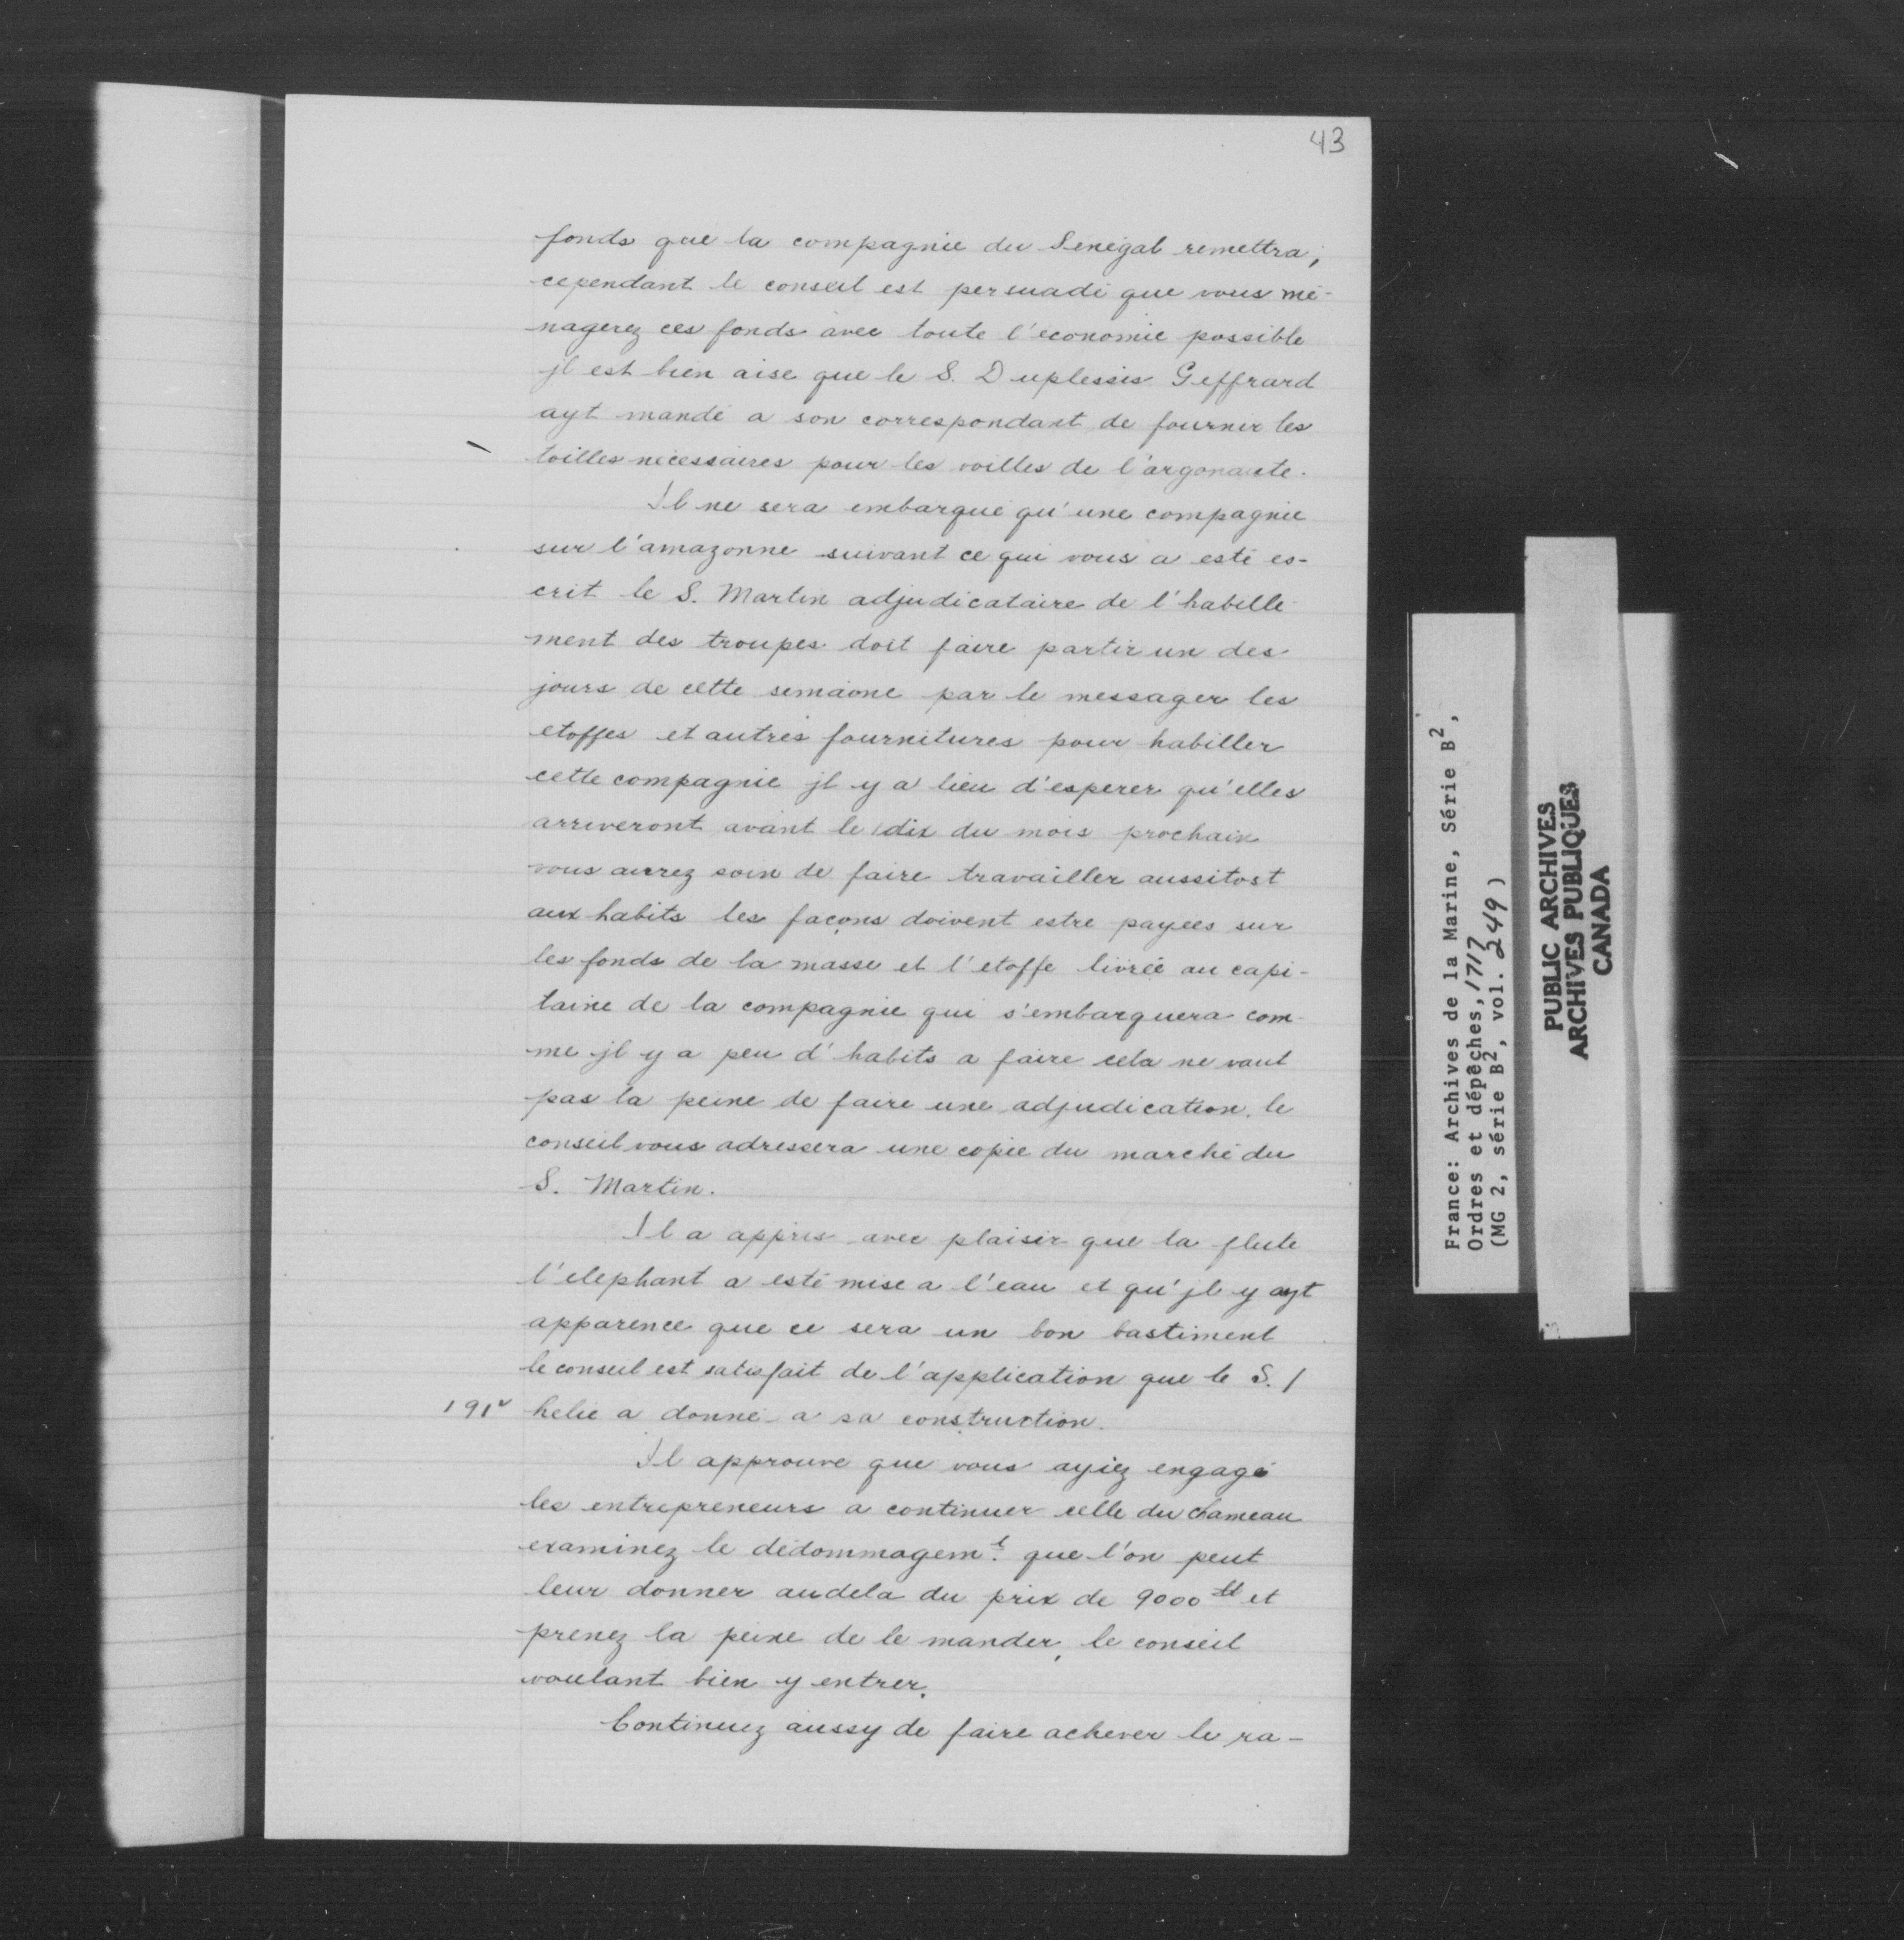 43
fonds que la compagnie du Sénégal remettra,
cependant le conseil est persuadé que vous mé-
nagerez ces fonds avec toute l'economie possible
jl est bien aise que le S. Duplessis Geffrard
ayt mandé a son correspondant de fournir les
toilles nécessaires pour les voilles de l'argonaute.
Il ne sera embarqué qu'une compagnie
sur l'amazonne suivant ce qui vous a esté es-
crit le S. Martin adjudicataire de l'habille-
ment des troupes doit faire partir un des
jours de cette semaine par le messager les
etoffes et autres fournitures pour habiller
cette compagnie jl y a lieu d'esperer qu'elles
arriveront avant le dix du mois prochain
vous aurez soin de faire travailler aussitost
aux habits les façons doivent estre payées sur
les fonds de la masse et l'etoffe livrée au capi-
taine de la compagnie qui s'embarquera com-
me jl y a peu d'habits a faire cela ne vaut
pas la peine de faire une adjudication. le
conseil vous adressera une copie du marché du
S. Martin.
Il a appris avec plaisir que la flute
l'elephant a esté mise a l'eau et qu'jl y ayt
apparence que ce sera un bon bastiment
le conseil est satisfait de l'application que le S. /
191v helie a donné a sa construction.
Il approuve que vous ayiez engagé
les entrepreneurs a continuer celle du chameau
examinez le dédommagem.t que l'on peut
leur donner audela du prix de 9000 tt et
prenez la peine de le mander, le conseil
voulant bien y entrer.
Continuez aussy de faire achever le ra-
France: Archives de la Marine, Série B2,
Ordres et dépêches, 1717
(MG 2, série B2, vol. 249)
PUBLIC ARCHIVES
ARCHIVES PUBLIQUES
CANADA